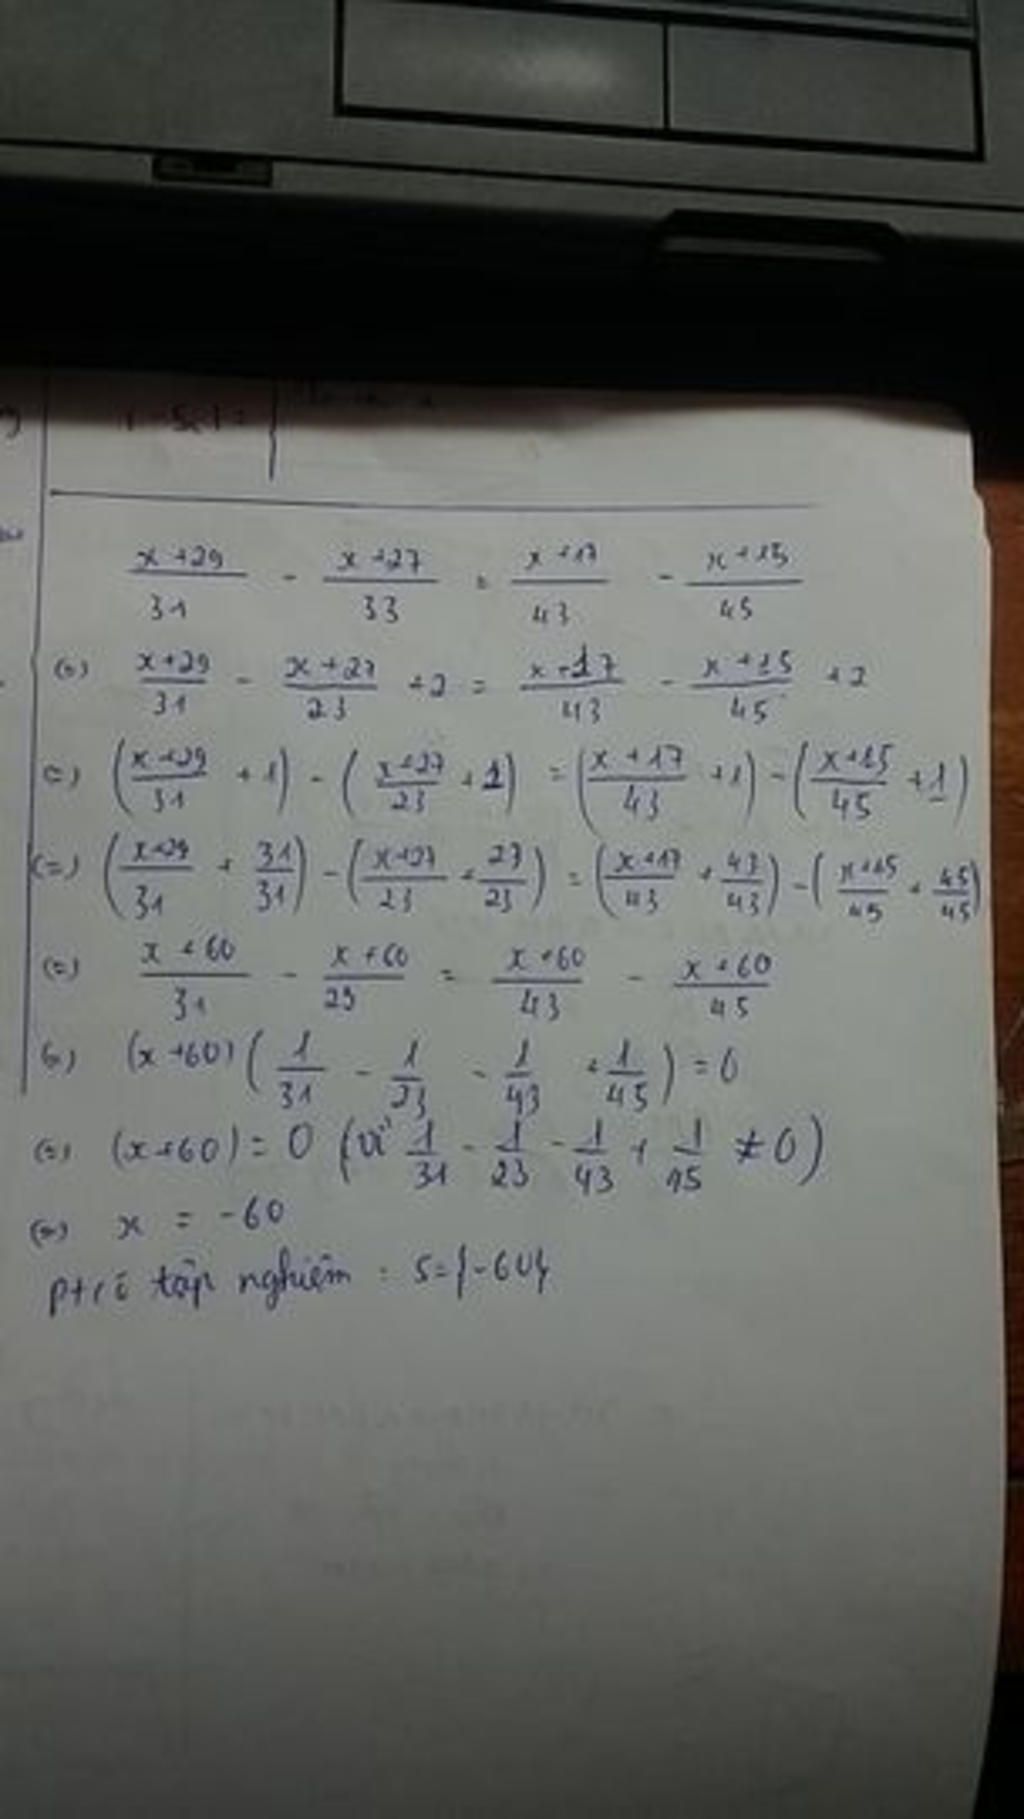 x+29/31 - x+27/33 = x+17/43 - x+15/45
(=) x+29/31 - x+27/23 +2 = x+17/43 - x+15/45 +2
(=) (x+29/31 + 1) - (x+27/23 + 1) = (x+17/43 + 1) - (x+15/45 + 1)
(=) (x+29/31 + 31/31) - (x+27/23 + 23/23) = (x+17/43 + 43/43) - (x+15/45 + 45/45)
(=) x+60/31 - x+60/23 = x+60/43 - x+60/45
(=) (x+60) (1/31 - 1/23 - 1/43 + 1/45) = 0
(=) (x+60) = 0 (vì 1/31 - 1/23 - 1/43 + 1/45 ≠ 0)
(=) x = -60
pt có tập nghiệm : S={-60}